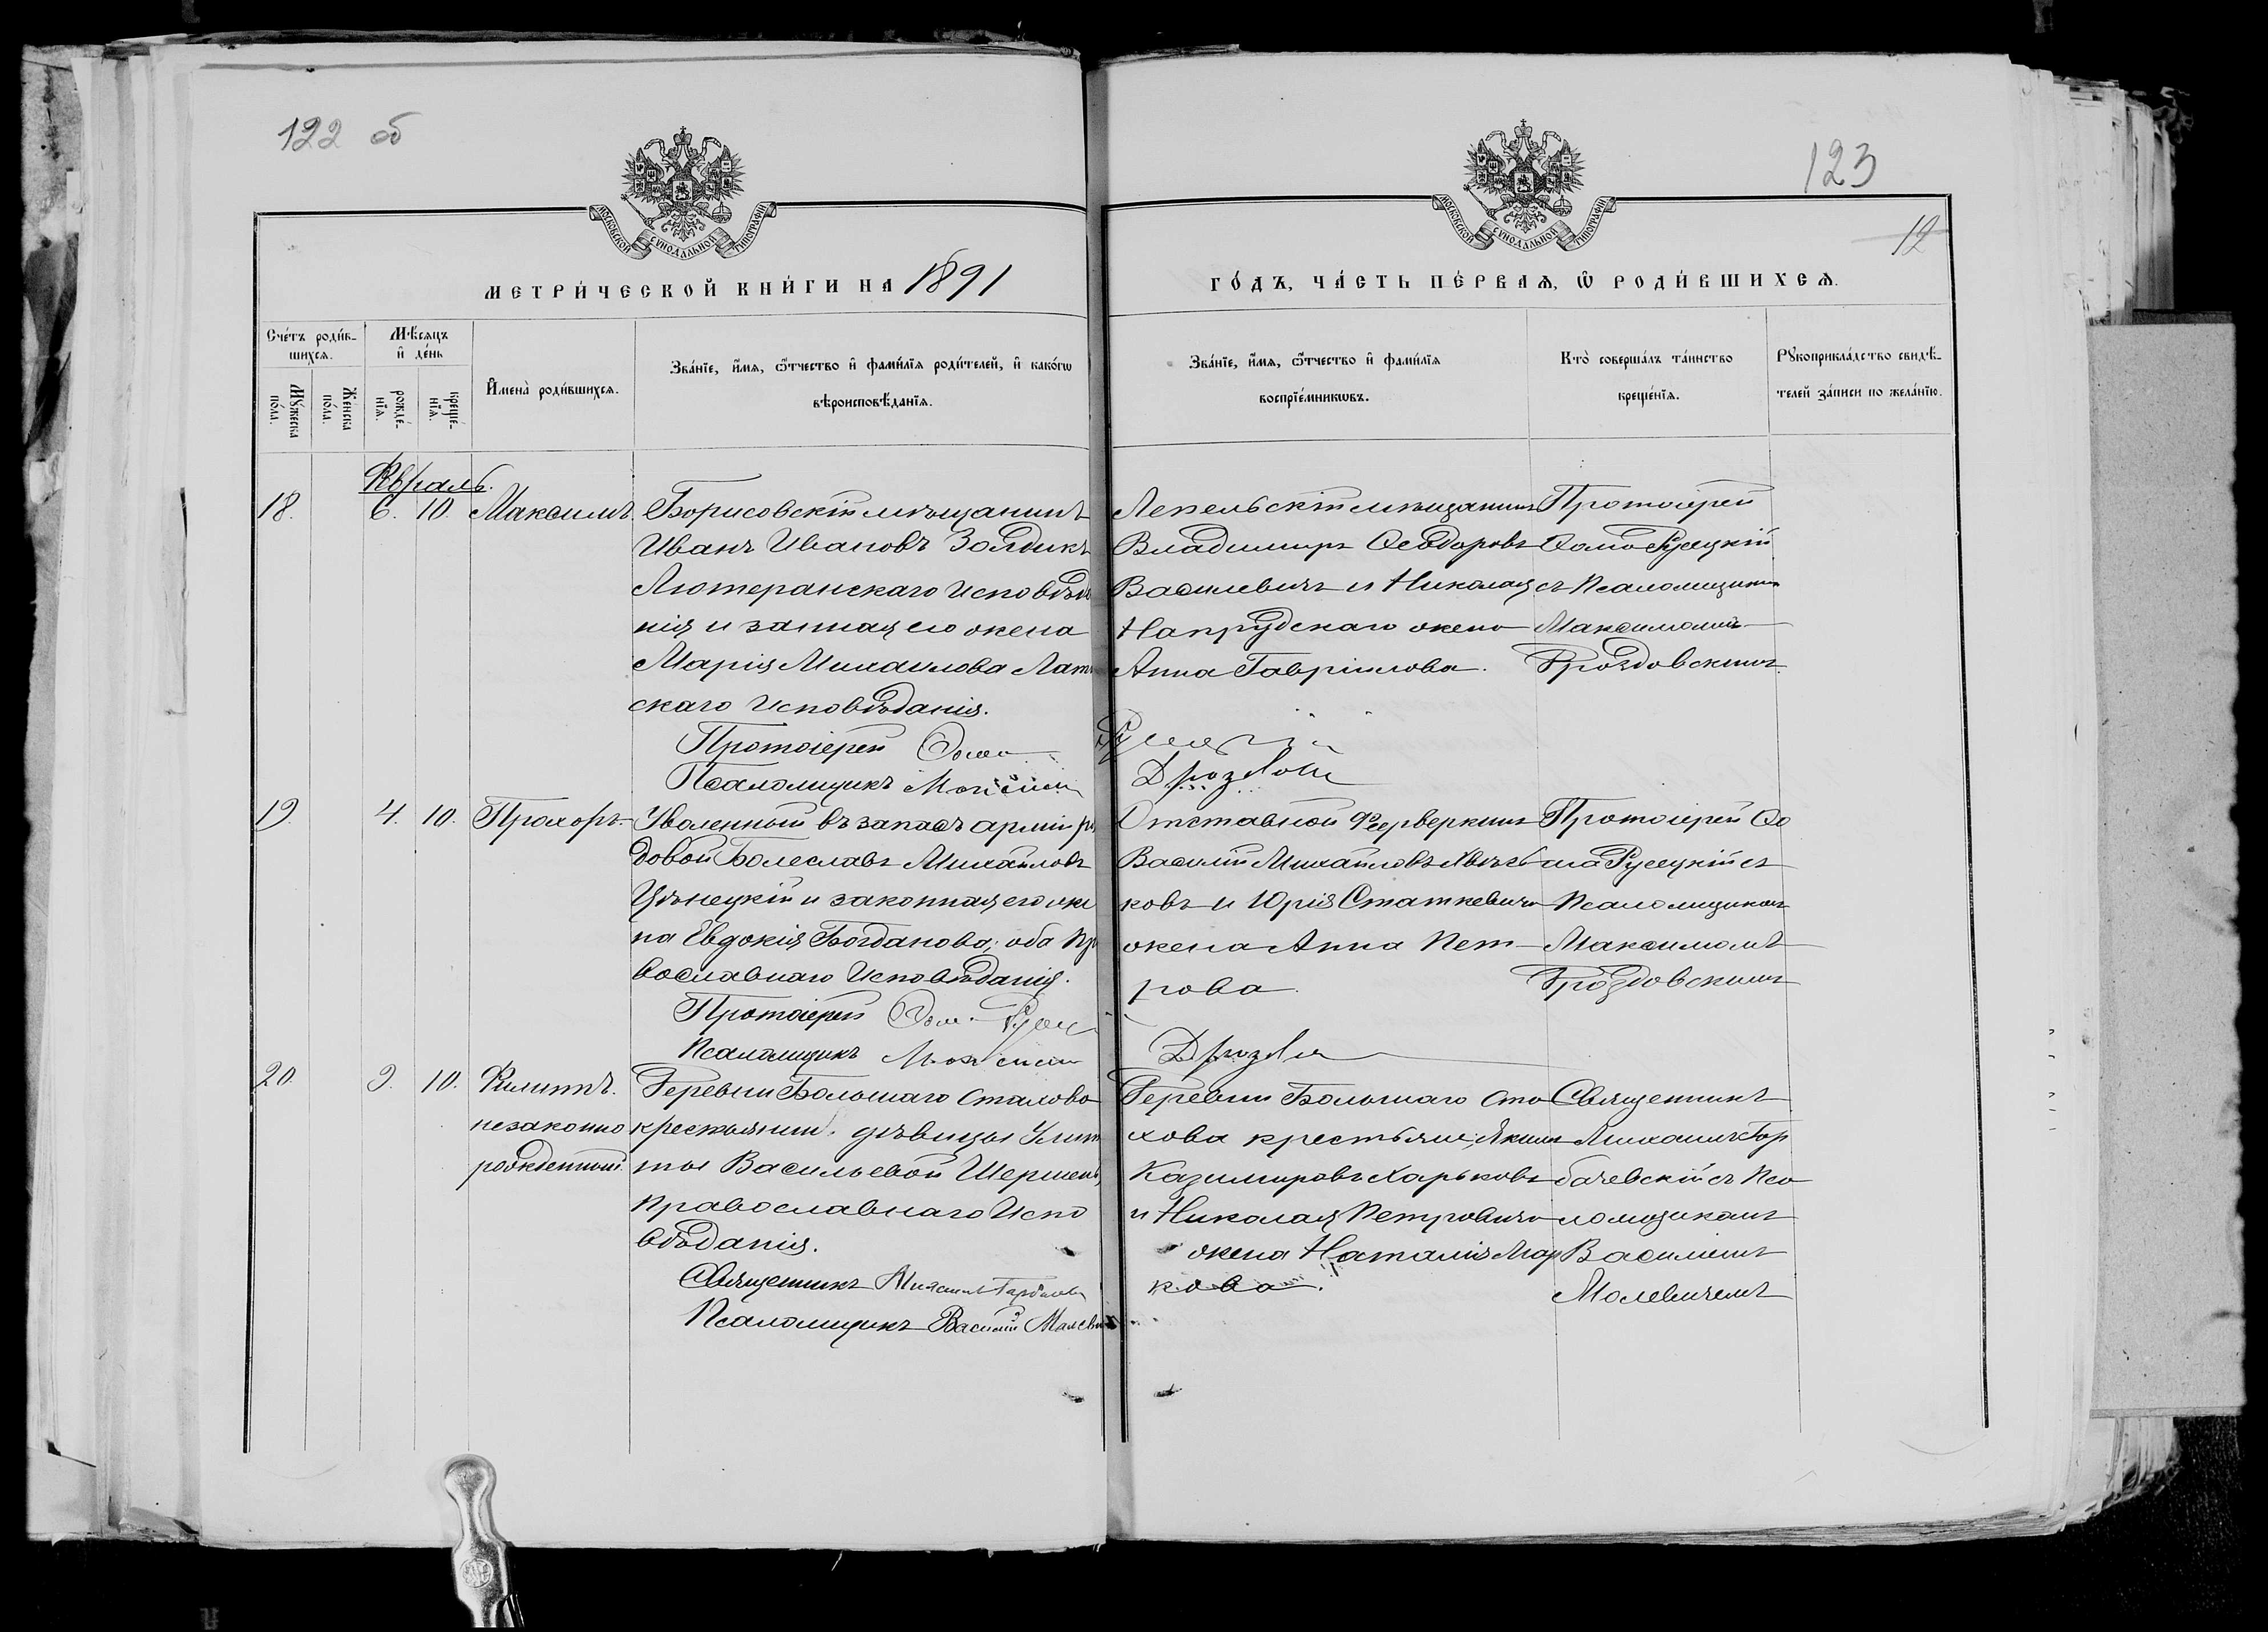 122 об
123
12
МОСКОВСКОЙ СѴНОДАЛЬНОЙ ТИПОГРАФІИ
МОСКОВСКОЙ СѴНОДАЛЬНОЙ ТИПОГРАФІИ
МЕТРИ́ЧЕСКОЙ КНИ́ГИ НА 1891
ГО́ДЪ, ЧА́СТЬ ПЕ́РВАѦ, Ѡ҆ РОДИ́ВШИХСѦ.
Сче́тъ роди́в-
шихсѧ.
Мꙋ́жеска
по́ла.
Же́нска
по́ла.
Мѣ́сѧцъ
и҆ де́нь
рожде́-
нїѧ.
креще́-
нїѧ.
И҆мена̀ роди́вшихсѧ.
Зва́нїе, и҆́мѧ, ѻ҆́тчество и҆ фами́лїѧ роди́телей, и҆ како́гѡ
вѣроисповѣ́данїѧ.
Зва́нїе, и҆́мѧ, ѻ҆́тчество и҆ фами́лїѧ
воспрїе́мникѡвъ.
Кто̀ соверша́лъ та́инство
креще́нїѧ.
Рꙋкоприкла́дство свидѣ́-
телей за́писи по жела́нїю.
18. 6. 10. Максимъ.
Борисовскій мѣщанинъ
Иванъ Ивановъ
Лютеранскаго Исповѣда
нія и законная его жена
Марія Михаилова Лати
скаго Исповѣданія.
Протоіерей Ѳома
Псаломщикъ Максим
Лепельскій мѣщанинъ
Владимиръ Ѳеодоровъ
Василевичъ и Николая
Напрудскаго жена
Анна Гавріилова.
Дроздов
Протоіерей
Ѳома Русецкій
съ Псаломщикомъ
Максимомъ
Дроздовскимъ.
19. 4. 10. Прохоръ.
Уволенный въ запасъ арміи ря
довой Болеславъ Михайловъ
и законная его же
на Евдокія Богданова, оба Пр
вославнаго Исповѣданія.
Протоіерей Ѳом Русец
Псаломщикъ Максим
Отставной Фейерверкинъ
Василій Михайловъ
ковъ и Юрія Статкевича
жена Анна Пет-
рова.
Дроздов
Протоіерей Ѳо
ма Русецкій съ
Псаломщикомъ
Максимомъ
Дроздовскимъ
20. 9. 10. Филиппъ.
незаконно
рожденный.
Деревни Большаго Стахова
крестьянин. дѣвицы Улит
ты Васильевой
Православнаго Испо
вѣданія.
Священникъ Михаилъ Горбачев
Псаломщикъ Василій Малеви
Деревни Большаго Ста
хова крестьяне, Якимъ
Казимировъ Харьковъ
и Николая Петровича
жена Наталія Мар
кова.
Священникъ
Михаилъ Гор
бачевскій съ Пса
ломщикомъ
Василіемъ
Малевичемъ